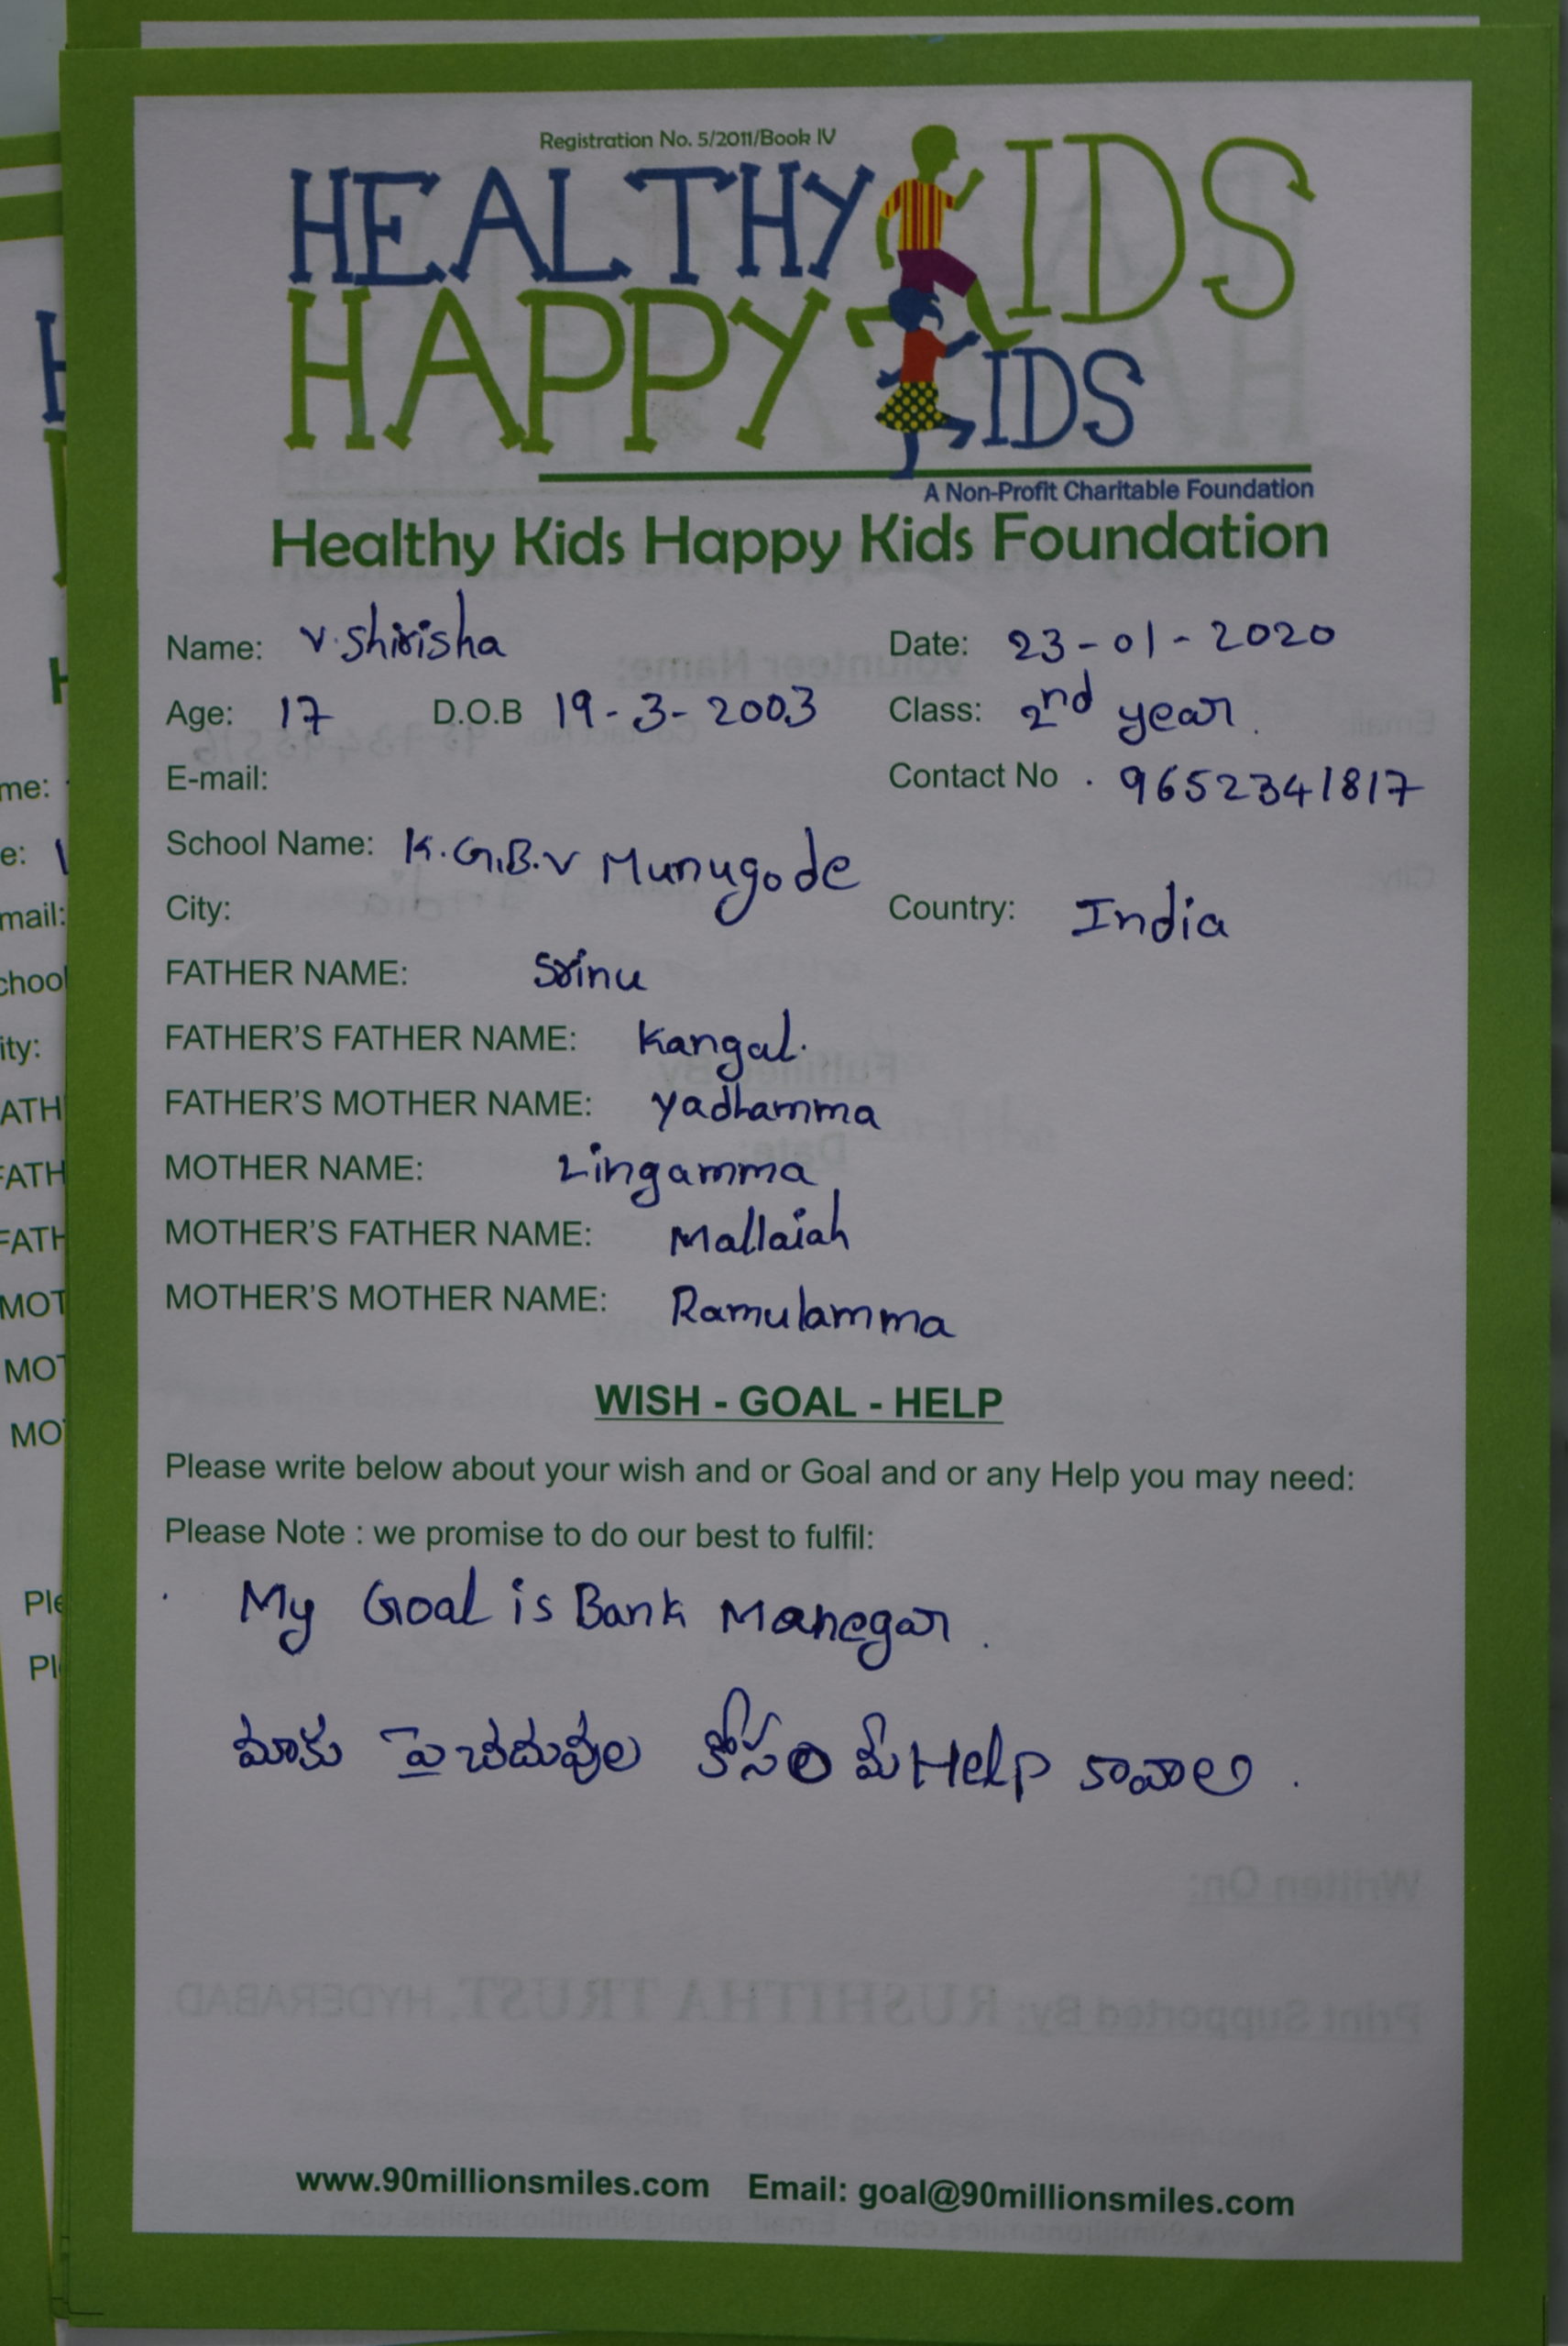 Registration No. 5/2011/Book IV
HEALTHY KIDS
HAPPY KIDS
A Non-Profit Charitable Foundation
Healthy Kids Happy Kids Foundation
Name: V. Shirisha Date: 23-01-2020
Age: 17 D.O.B 19-3-2003 Class: 2nd year.
E-mail: Contact No. 9652341817
School Name: K.G.B.V Munugode
City: Country: India
FATHER NAME: Srinu
FATHER'S FATHER NAME: Kangal.
FATHER'S MOTHER NAME: Yadhamma
MOTHER NAME: Lingamma
MOTHER'S FATHER NAME: Mallaiah
MOTHER'S MOTHER NAME: Ramulamma
WISH - GOAL - HELP
Please write below about your wish and or Goal and or any Help you may need:
Please Note : we promise to do our best to fulfil:
My Goal is Bank Manegar.
మాకు పై చదువుల కోసం మీ Help కావాల.
www.90millionsmiles.com Email: goal@90millionsmiles.com